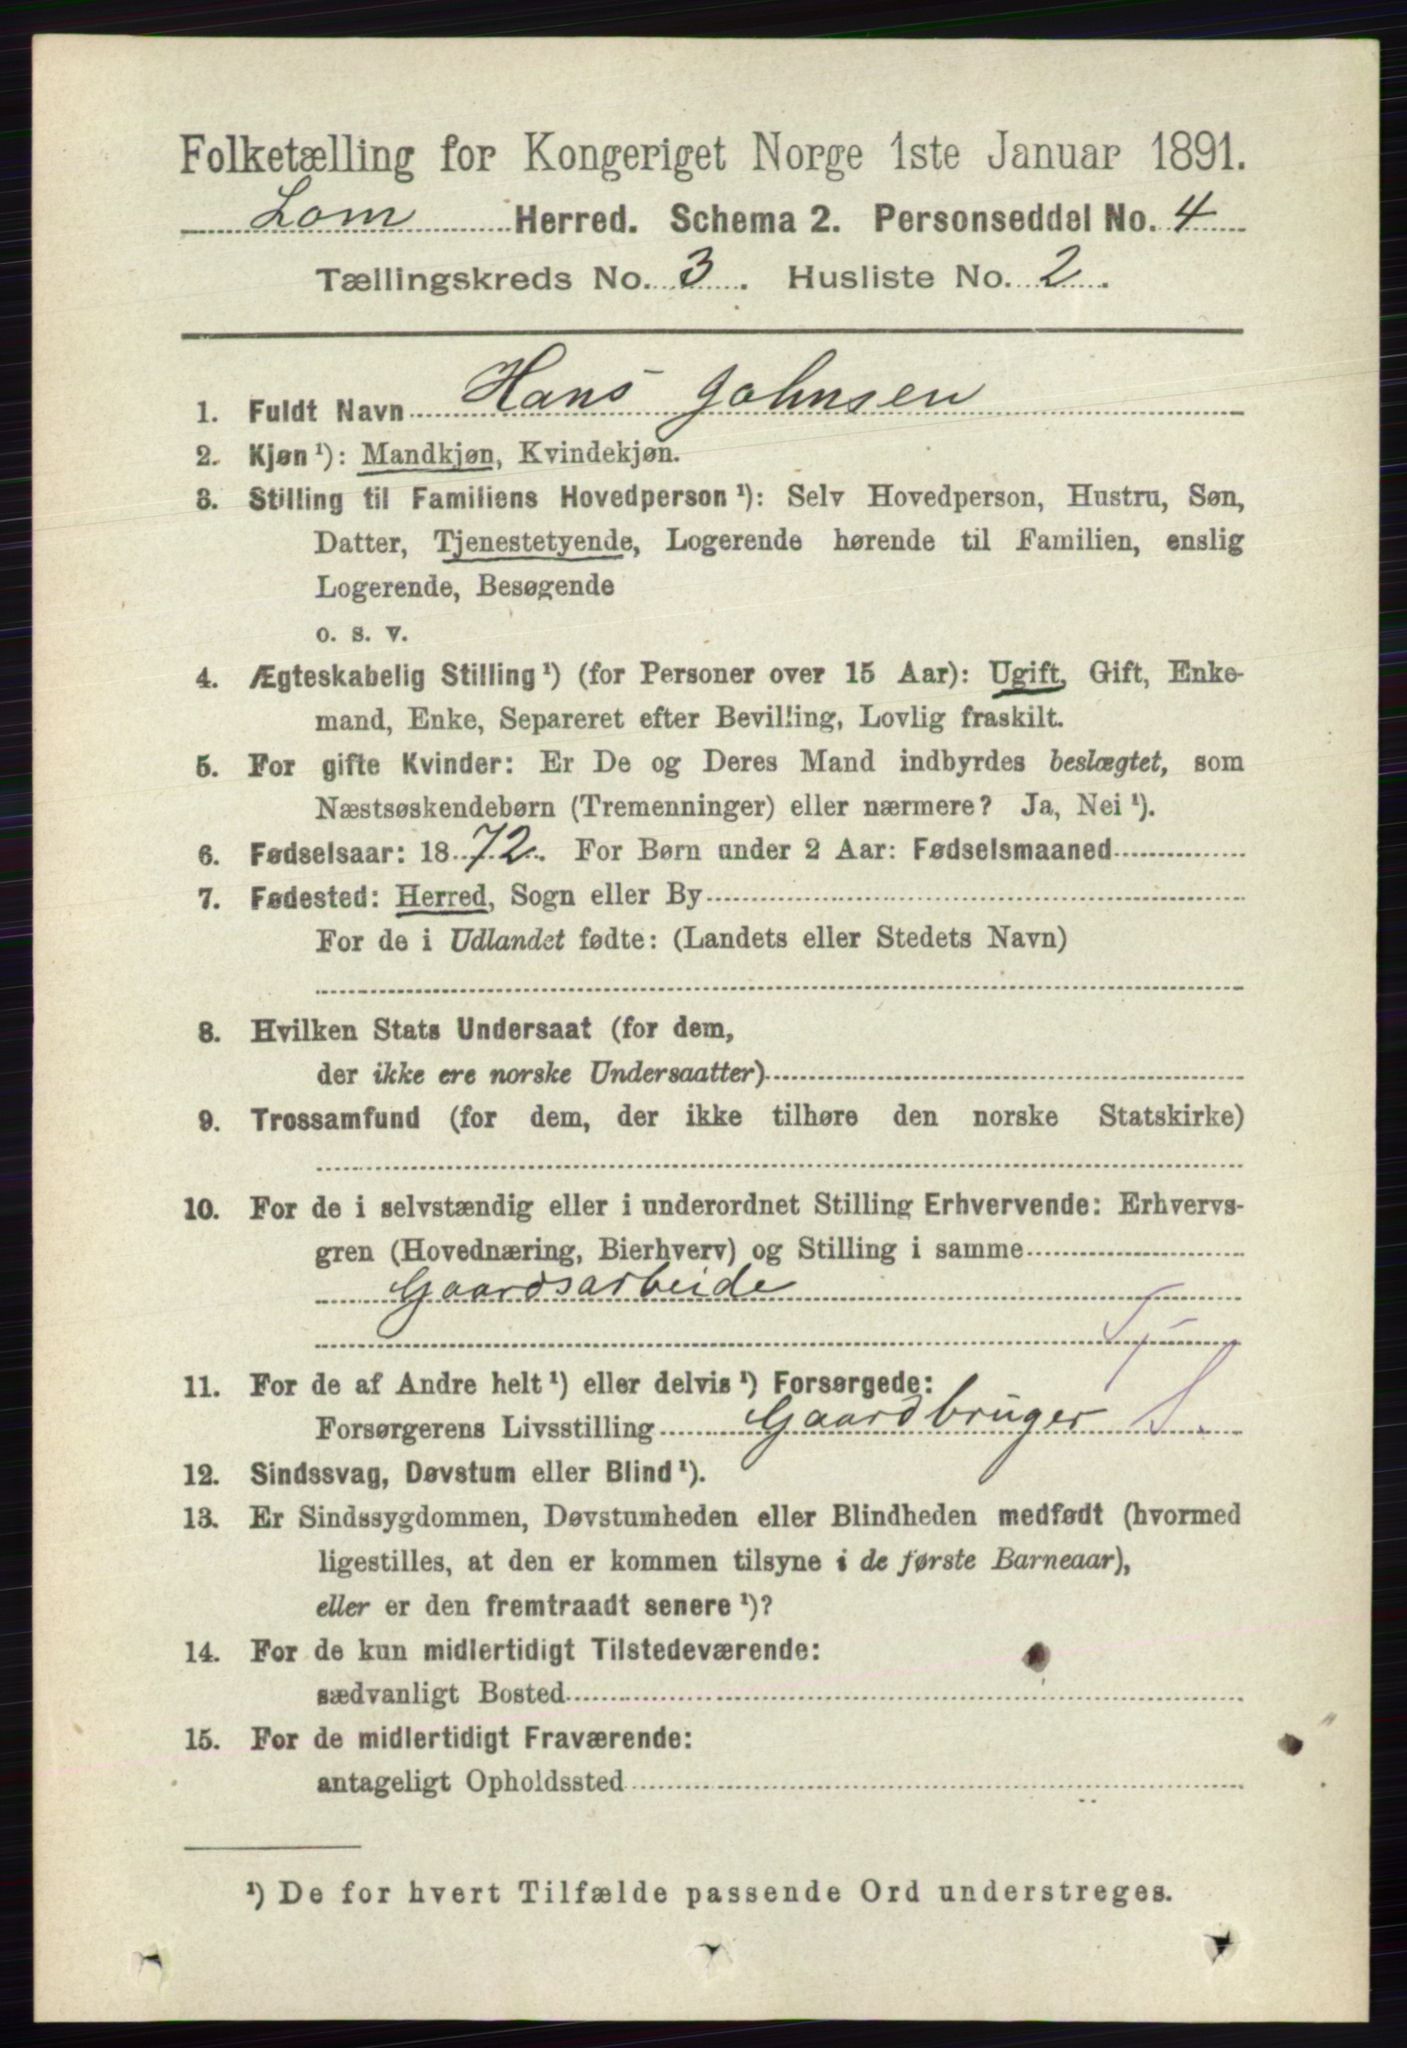 Folketælling for Kongeriget Norge 1ste Januar 1891.
Lom Herred. Schema 2. Personseddel No. 4
Tællingskreds No. 3. Husliste No. 2.
1. Fuldt Navn Hans Johnsen
2. Kjøn ¹): Mandkjøn, Kvindekjøn.
3. Stilling til Familiens Hovedperson ¹): Selv Hovedperson, Hustru, Søn,
Datter, Tjenestetyende, Logerende hørende til Familien, enslig
Logerende, Besøgende
o. s. v.
4. Ægteskabelig Stilling ¹) (for Personer over 15 Aar): Ugift, Gift, Enke-
mand, Enke, Separeret efter Bevilling, Lovlig fraskilt.
5. For gifte Kvinder: Er De og Deres Mand indbyrdes beslægtet, som
Næstsøskendebørn (Tremenninger) eller nærmere? Ja, Nei ¹).
6. Fødselsaar: 1872. For Børn under 2 Aar: Fødselsmaaned
7. Fødested: Herred, Sogn eller By
For de i Udlandet fødte: (Landets eller Stedets Navn)
8. Hvilken Stats Undersaat (for dem,
der ikke ere norske Undersaatter)
9. Trossamfund (for dem, der ikke tilhøre den norske Statskirke)
10. For de i selvstændig eller i underordnet Stilling Erhvervende: Erhvervs-
gren (Hovednæring, Bierhverv) og Stilling i samme
Gaardsarbeide
11. For de af Andre helt ¹) eller delvis ¹) Forsørgede:
Forsørgerens Livsstilling Gaardbruger S.
12. Sindssvag, Døvstum eller Blind ¹).
13. Er Sindssygdommen, Døvstumheden eller Blindheden medfødt (hvormed
ligestilles, at den er kommen tilsyne i de første Barneaar),
eller er den fremtraadt senere ¹)?
14. For de kun midlertidigt Tilstedeværende:
sædvanligt Bosted
15. For de midlertidigt Fraværende:
antageligt Opholdssted
¹) De for hvert Tilfælde passende Ord understreges.